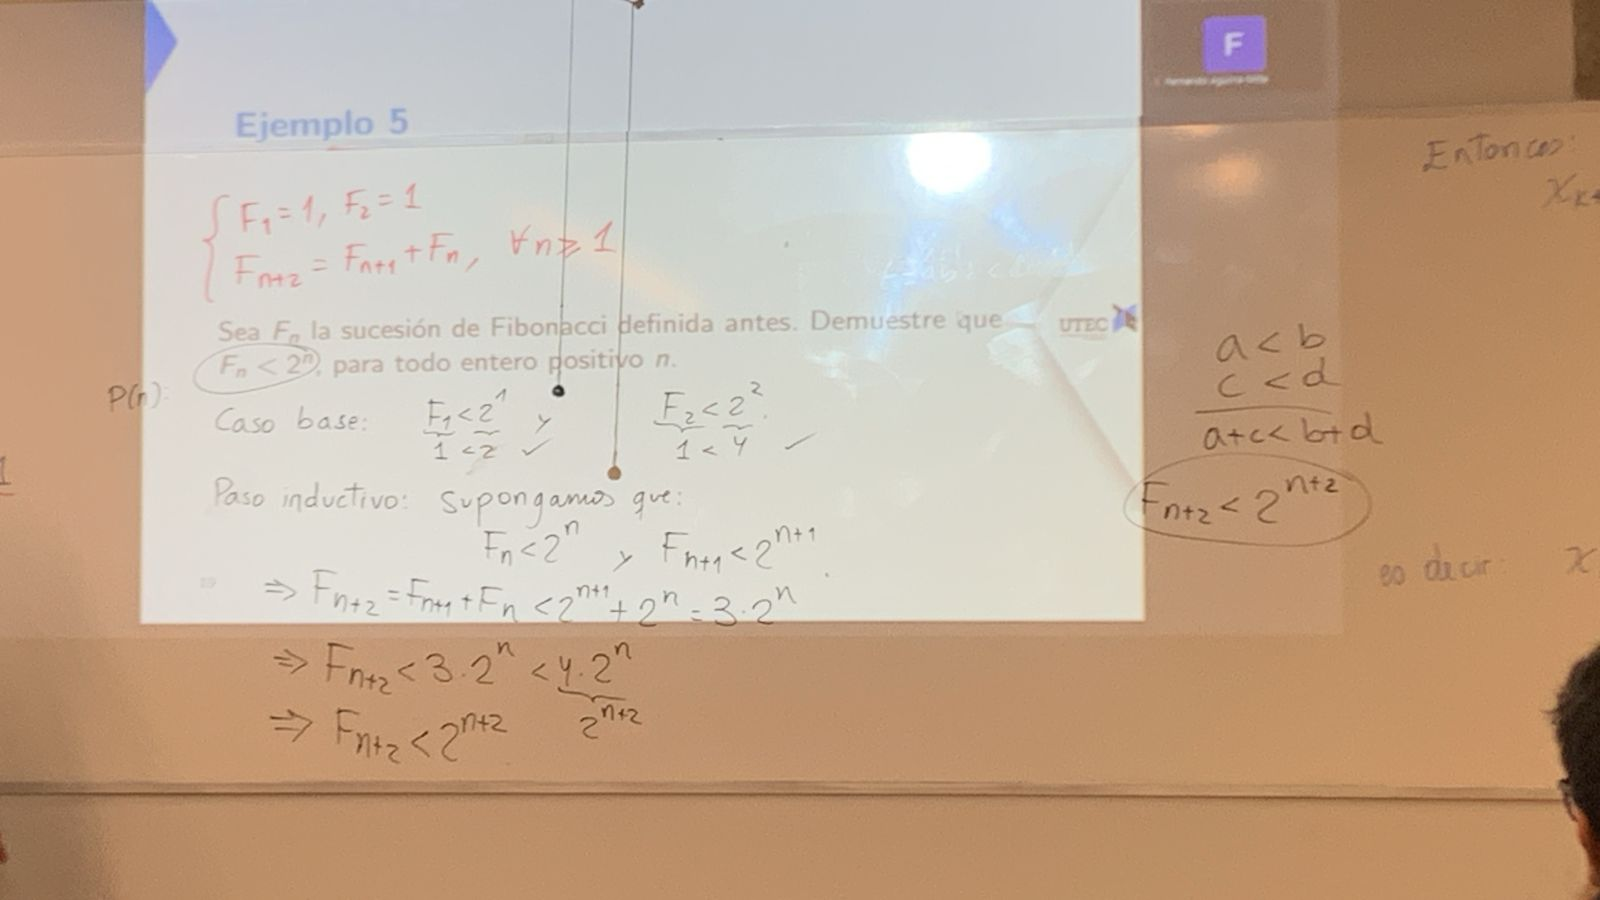 F
Ejemplo 5
F₁ = 1, F₂ = 1
Fₙ₊₂ = Fₙ₊₁ + Fₙ, ∀n ≥ 1
Sea Fₙ la sucesión de Fibonacci definida antes. Demuestre que
Fₙ < 2ⁿ, para todo entero positivo n.
UTEC
P(n):
Caso base: F₁ < 2¹ y F₂ < 2².
1 < 2 ✓ 1 < 4 ✓
Paso inductivo: Supongamos que:
Fₙ < 2ⁿ y Fₙ₊₁ < 2ⁿ⁺¹.
19
⇒ Fₙ₊₂ = Fₙ₊₁ + Fₙ < 2ⁿ⁺¹ + 2ⁿ = 3·2ⁿ
⇒ Fₙ₊₂ < 3·2ⁿ < 4·2ⁿ
2ⁿ⁺²
⇒ Fₙ₊₂ < 2ⁿ⁺²
Entonces:
a < b
c < d
a+c < b+d
Fₙ₊₂ < 2ⁿ⁺²
es decir: x
1